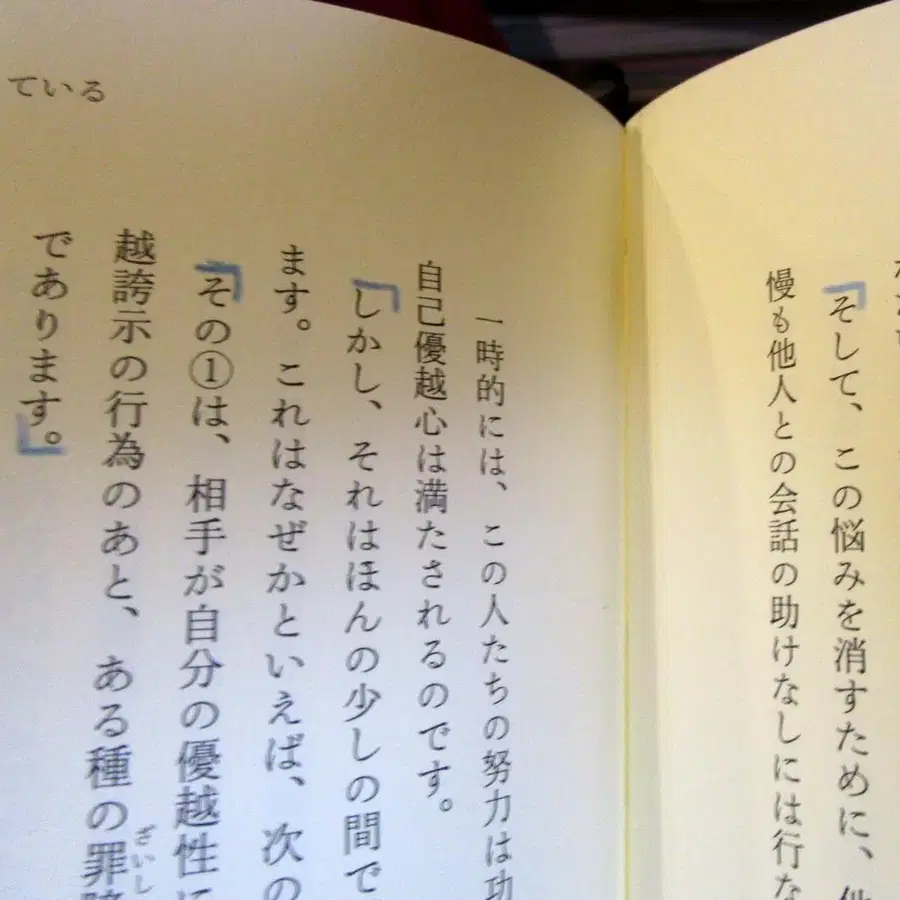 そして、この悩みを消すために、
慢も他人との会話の助けなしには行な
ている
一時的には、この人たちの努力は功
自己優越心は満たされるのです。
しかし、それはほんの少しの間で
ます。これはなぜかといえば、次の
その①は、相手が自分の優越性に
越誇示の行為のあと、ある種の罪
ざいし
であります。